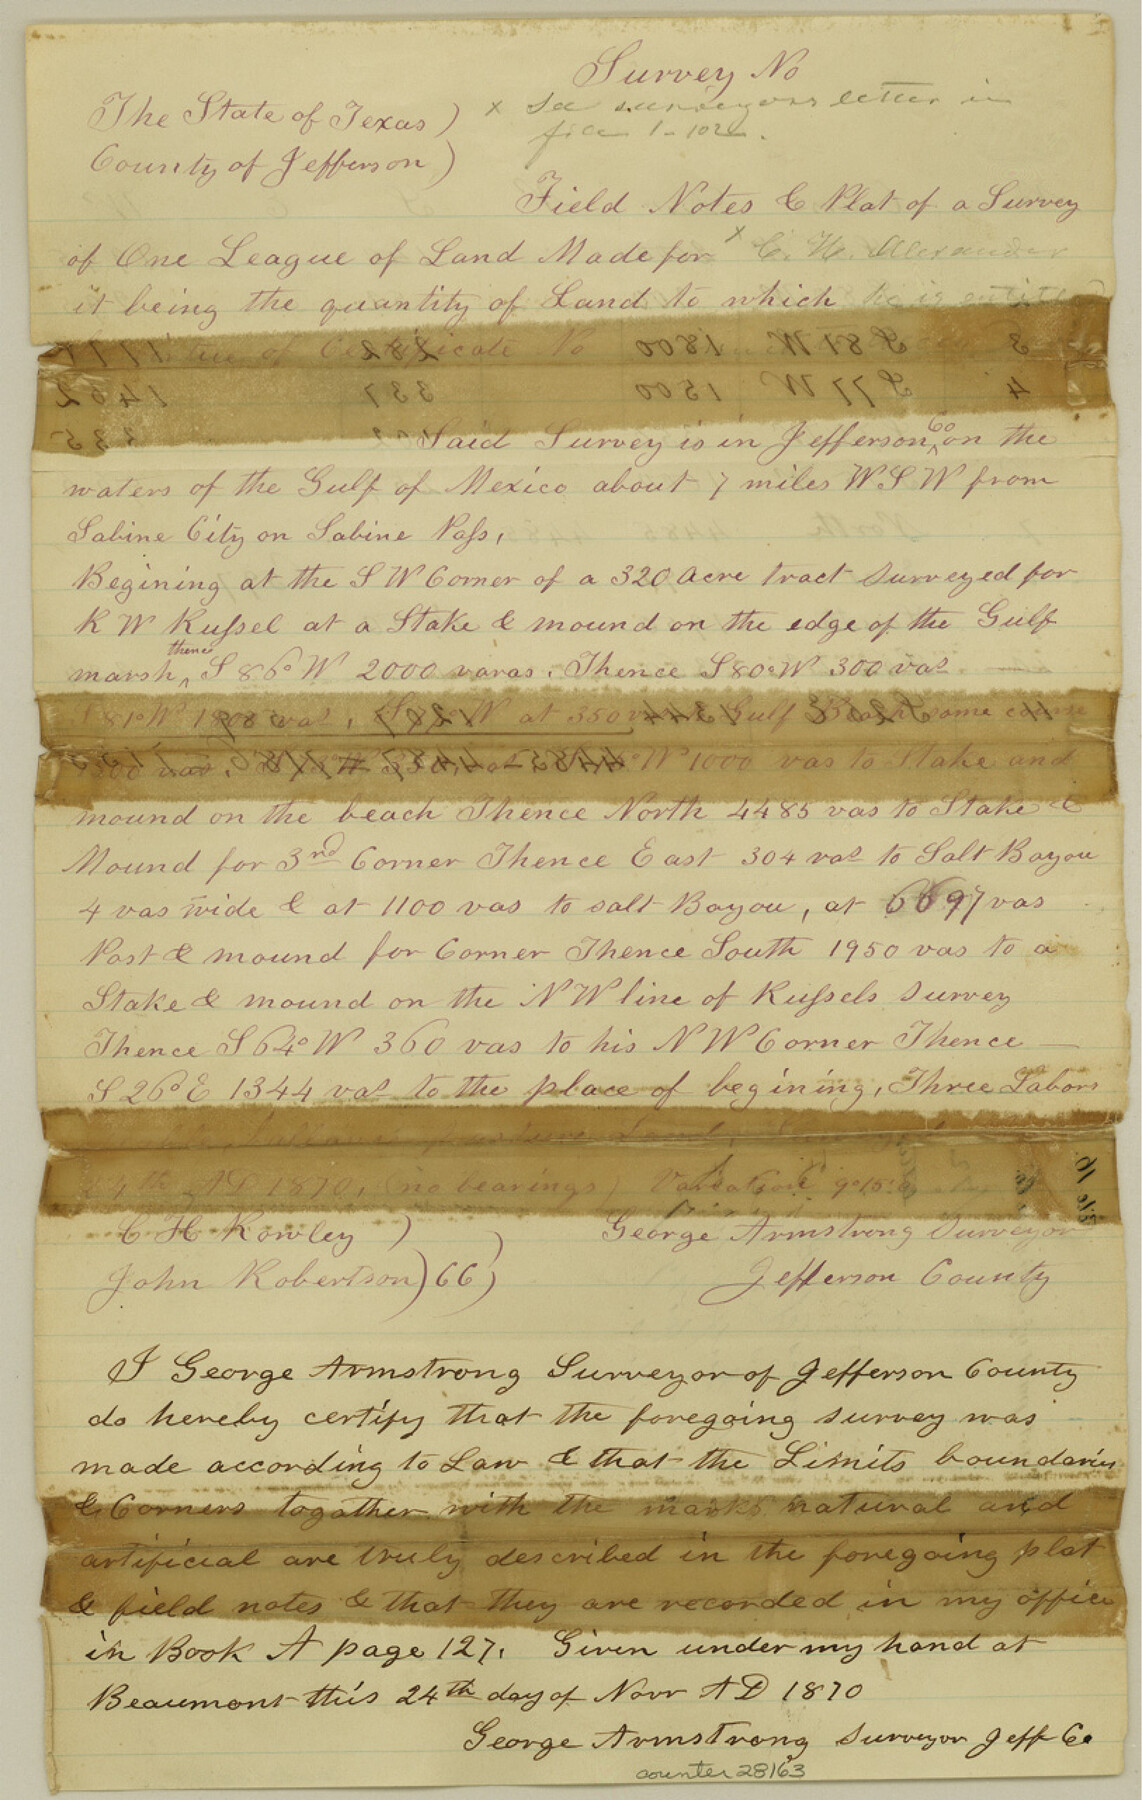 Survey No
The State of Texas ) x See surveyors letter in
file 1-102.
County of Jefferson )
Field Notes & Plat of a Survey
of One League of Land Made for x C. H. Alexander
it being the quantity of Land to which he is entitled
of Certificate No
Said Survey is in Jefferson Co on the
waters of the Gulf of Mexico about 7 miles W S W from
Sabine City on Sabine Pass,
Begining at the S W Corner of a 320 Acre tract surveyed for
R W Russel at a Stake & mound on the edge of the Gulf
marsh thence S 86° W 2000 varas. Thence S 80° W 300 vas
S 81° W 1800 vas, at 350 Gulf Beach same course
W 1000 vas to Stake and
mound on the beach Thence North 4485 vas to Stake &
Mound for 3rd Corner Thence East 304 vas to Salt Bayou
4 vas wide & at 1100 vas to salt Bayou, at 6697 vas
Post & mound for Corner Thence South 1950 vas to a
Stake & mound on the N W line of Russels Survey
Thence S 64° W 360 vas to his N W Corner Thence
S 26° E 1344 vas to the place of begining, Three Labors
Land,
AD 1870, (no bearings) Variation 9°15'
C H Rowley )
George Armstrong Surveyor
John Robertson ) CC )
Jefferson County
I George Armstrong Surveyor of Jefferson County
do hereby certify that the foregoing survey was
made according to Law & that the Limits boundaries
& Corners together with the marks natural and
artificial are truly described in the foregoing plat
& field notes & that they are recorded in my office
in Book A page 127. Given under my hand at
Beaumont this 24th day of Novr AD 1870
George Armstrong Surveyor Jeff Co
counter 28163